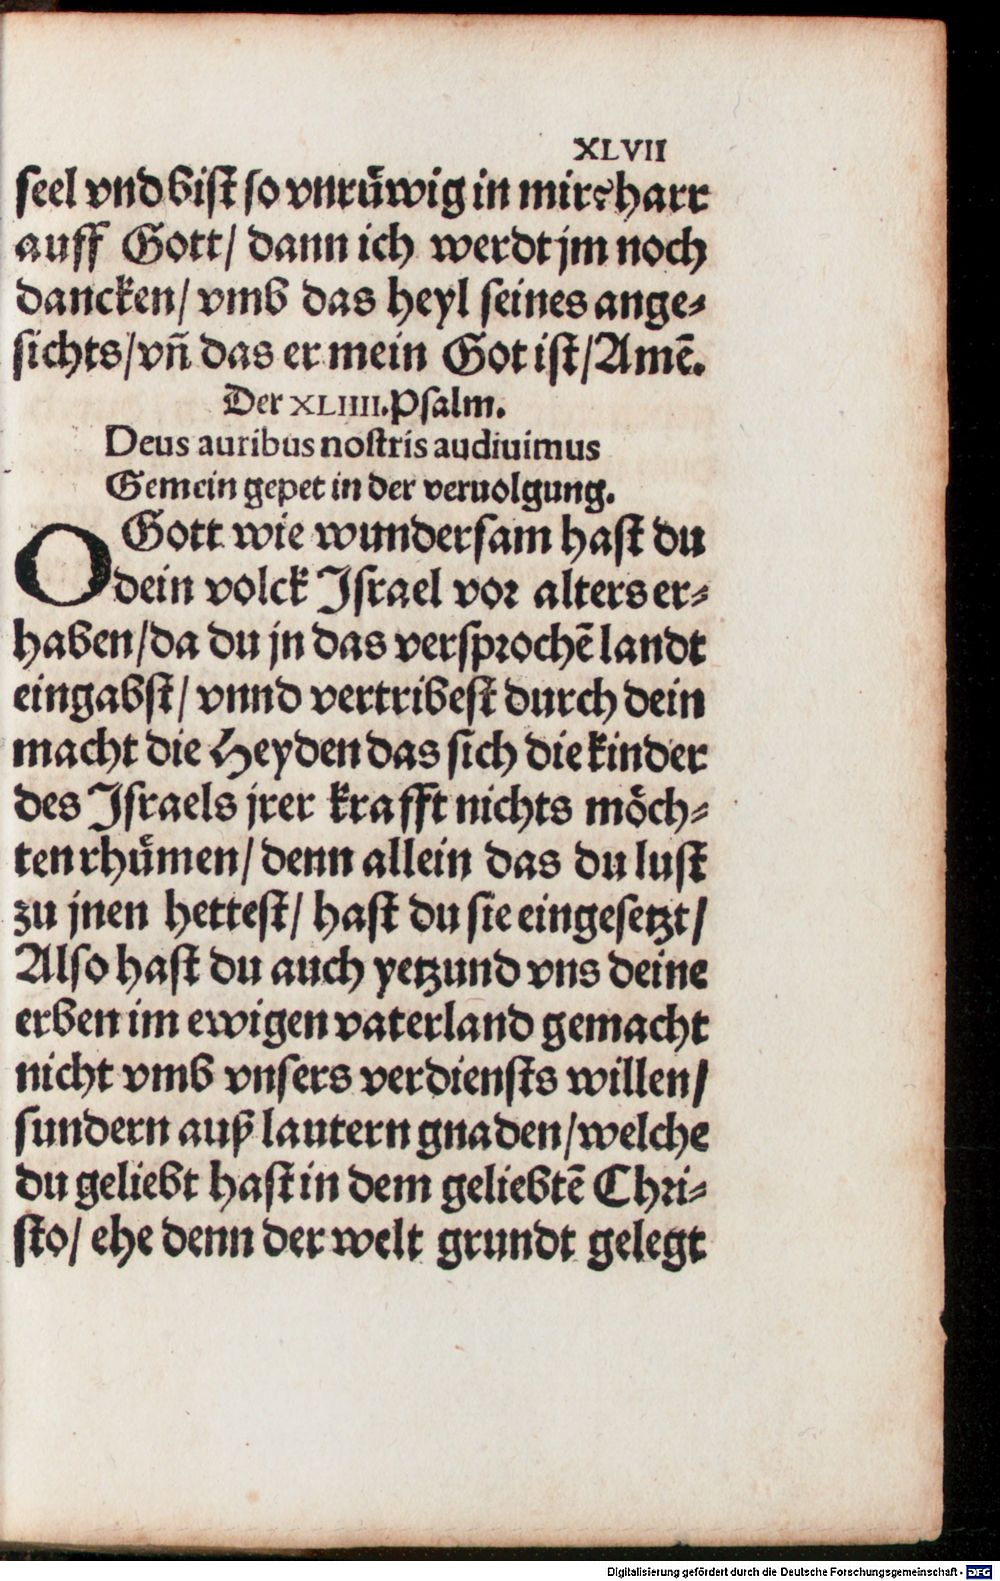 XLVII
seel vnd bist so vnruͤwig in mir? harr
auff Gott/ dann ich werdt jm noch
dancken/ vmb das heyl seines ange⸗
sichts/ vñ das er mein Got ist/ Amẽ.
Der XLIIII. Psalm.
Deus auribus nostris audiuimus
Gemein gepet in der veruolgung.
O Gott wie wundersam hast du
dein volck Israel vor alters er⸗
haben/ da du jn das versprochẽ landt
eingabst/ vnnd vertribest durch dein
macht die Heyden das sich die kinder
des Israels jrer krafft nichts moͤch⸗
ten rhuͤmen/ denn allein das du lust
zu jnen hettest/ hast du sie eingesetzt/
Also hast du auch yetzund vns deine
erben im ewigen vaterland gemacht
nicht vmb vnsers verdiensts willen/
sundern auß lautern gnaden/ welche
du geliebt hast in dem geliebtẽ Chri⸗
sto/ ehe denn der welt grundt gelegt
Digitalisierung gefördert durch die Deutsche Forschungsgemeinschaft - DFG